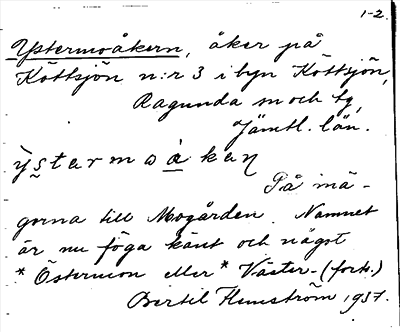 1-2.
Ystermoåkern, åker på
Köttsjön n:r 3 i byn Köttsjön,
Ragunda sn och tg,
Jämtl. län.
ỳstarmoàkaɳ
På mä-
gorna till Mogården. Namnet
är nu föga känt och något
*Östermon eller *Väster- (forts.)
Bertil Flemström 1937.